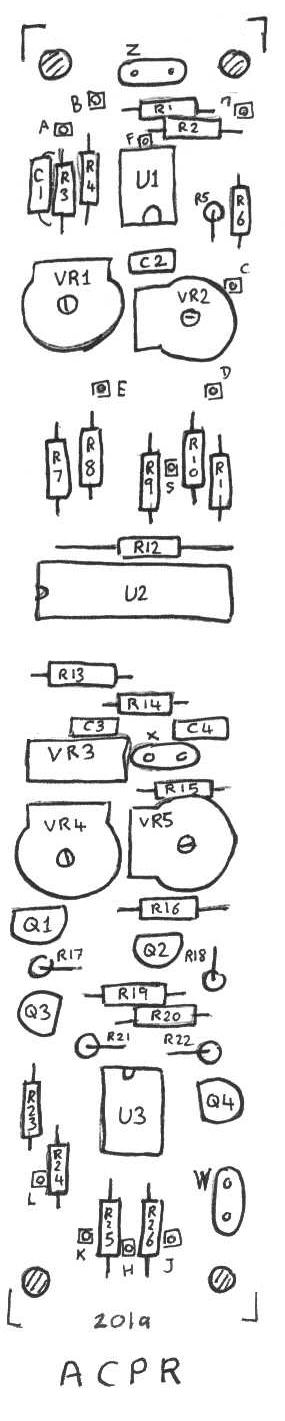 Z
B
R1
A
F
R2
C1
R3
R4
U1
R5
R6
C2
C
VR1
VR2
E
D
R7
R8
R9
S
R10
R11
R12
U2
R13
R14
C3
C4
VR3
X
R15
VR4
VR5
R16
Q1
Q2
R17
R18
Q3
R19
R20
R21
R22
R23
U3
Q4
R24
L
W
R25
R26
K
H
J
2019
ACPR